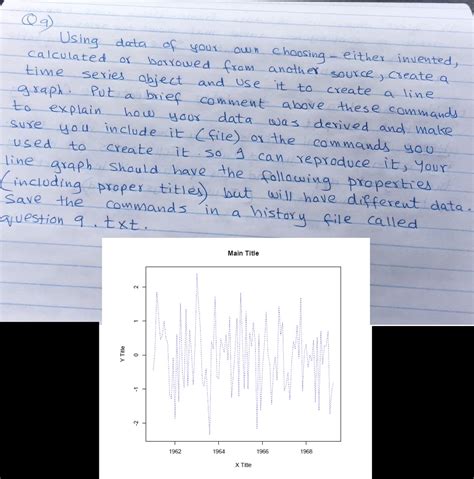 Q9)
Using data of your own choosing - either invented,
calculated or borrowed from another source, create a
time series object and use it to create a line
graph. Put a brief comment above these commands
to explain how your data was derived and make
sure you include it (file) or the commands you
used to create it so I can reproduce it, Your
line graph should have the following properties
(including proper titles) but will have different data.
Save the commands in a history file called
question 9.txt.
Main Title
Y Title
2
1
0
-1
-2
1962 1964 1966 1968
X Title